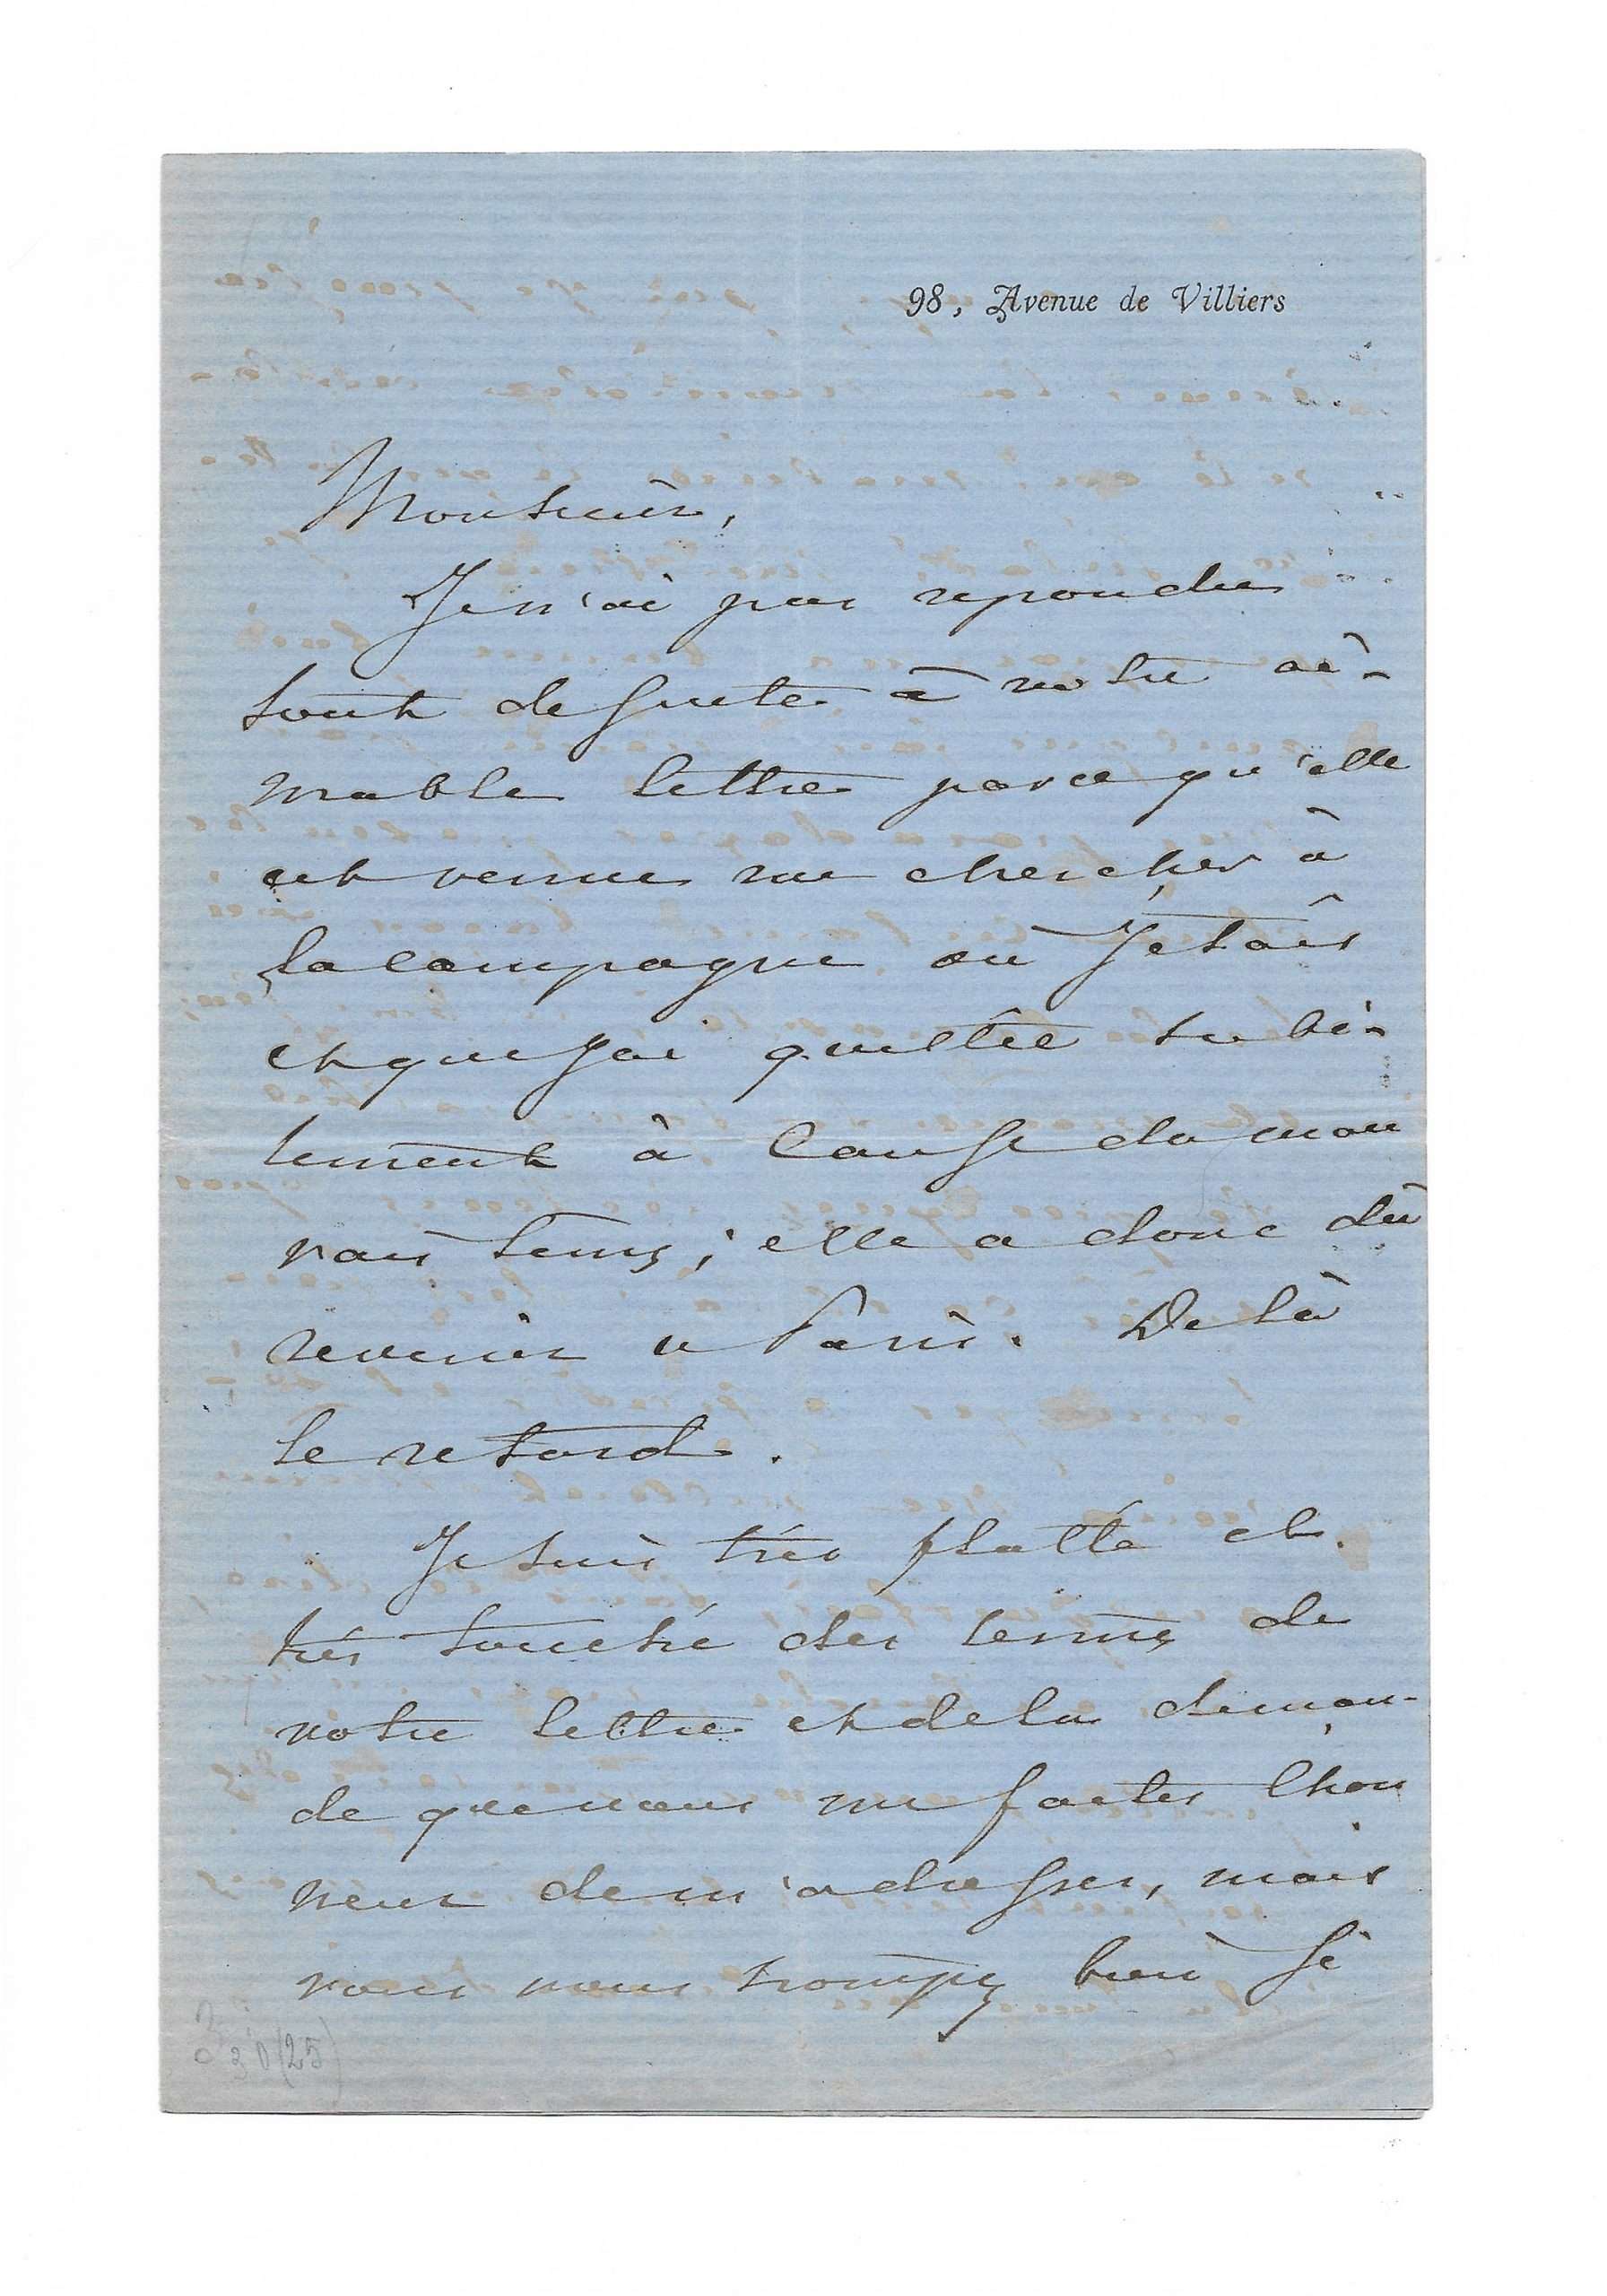 98, Avenue de Villiers
Monsieur,
Je n'ai pas repondu
tout de suite à votre ai-
mable lettre parce qu'elle
est venue me chercher à
la campagne où J'etais
et que j'ai quittée subi-
tement à cause du mau
vais tems; elle a donc dû
revenir a Paris. De là
le retard.
Je suis très flatté et
très touché des termes de
votre lettre et de la deman-
de que vous me faites l'hon
neur de m'adresser, mais
vous vous trompez bien si
30 (25)